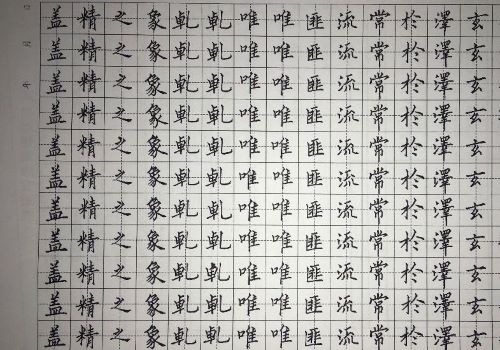 玄玄玄玄玄玄玄玄玄玄玄
澤澤澤澤澤澤澤澤澤澤澤
於於於於於於於於於於於
常常常常常常常常常常常
流流流流流流流流流流流
匪匪匪匪匪匪匪匪匪匪匪
唯唯唯唯唯唯唯唯唯唯唯
唯唯唯唯唯唯唯唯唯唯唯
乹乹乹乹乹乹乹乹乹乹乹
乹乹乹乹乹乹乹乹乹乹乹
象象象象象象象象象象象
之之之之之之之之之之之
精精精精精精精精精精精
盖盖盖盖盖盖盖盖盖盖盖